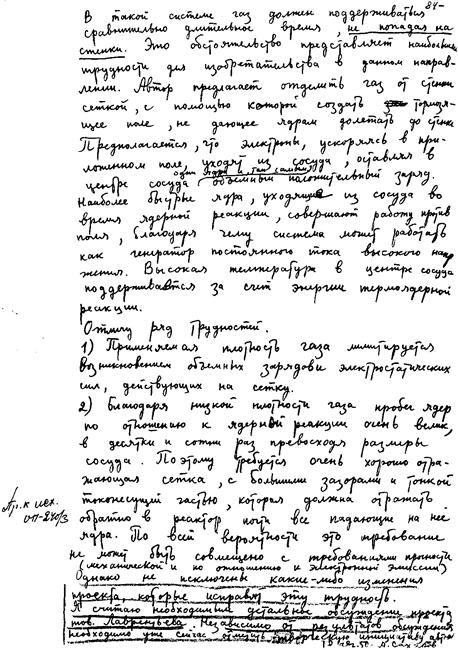 84-
В такой системе газ должен поддерживаться
сравнительно длительное время, не попадая на
стенки. Это обстоятельство представляет наибольшие
трудности для изобретательства в данном направ-
лении. Автор предлагает отделить газ от стенки
сеткой, с помощью которой создать тормозя-
щее поле, не дающее ядрам долетать до стенки
Предполагается, что электроны, ускорясь в при-
ложенном поле, уходят из сосуда, оставляя в
одни ядра и тем самым
центре сосуда объемный положительный заряд.
Наиболее быстрые ядра, уходящие из сосуда во
время ядерной реакции, совершают работу против
поля, благодаря чему система может работать
как генератор постоянного тока высокого напр
жения. Высокая температура в центре сосуда
поддерживается за счет энергии термоядерной
реакции.
Отмечу ряд трудностей.
1) Применяемая плотность газа лимитируется
возникновением объемных зарядов и электростатических
сил, действующих на сетку.
2) Благодаря низкой плотности газа пробег ядер
по отношению к ядерной реакции очень велик,
в десятки и сотни раз превосходя размеры
сосуда. Поэтому требуется очень хорошо отра-
жающая сетка, с большими зазорами и тонкой
токонесущей частью, которая должна отражать
обратно в реактор почти все падающие на нее
ядра. По всей вероятности это требование
не может быть совмещено с требованиями прочности
(механической и по отношению к электронной эмиссии)
Однако не исключены какие-либо изменения
проекта, которые исправят эту трудность.
Я считаю необходимым детальное обсуждение проекта
тов. Лаврентьева. Независимо от результатов обсуждения
необходимо уже сейчас отметить творческую инициативу автора
Пр. к исх.